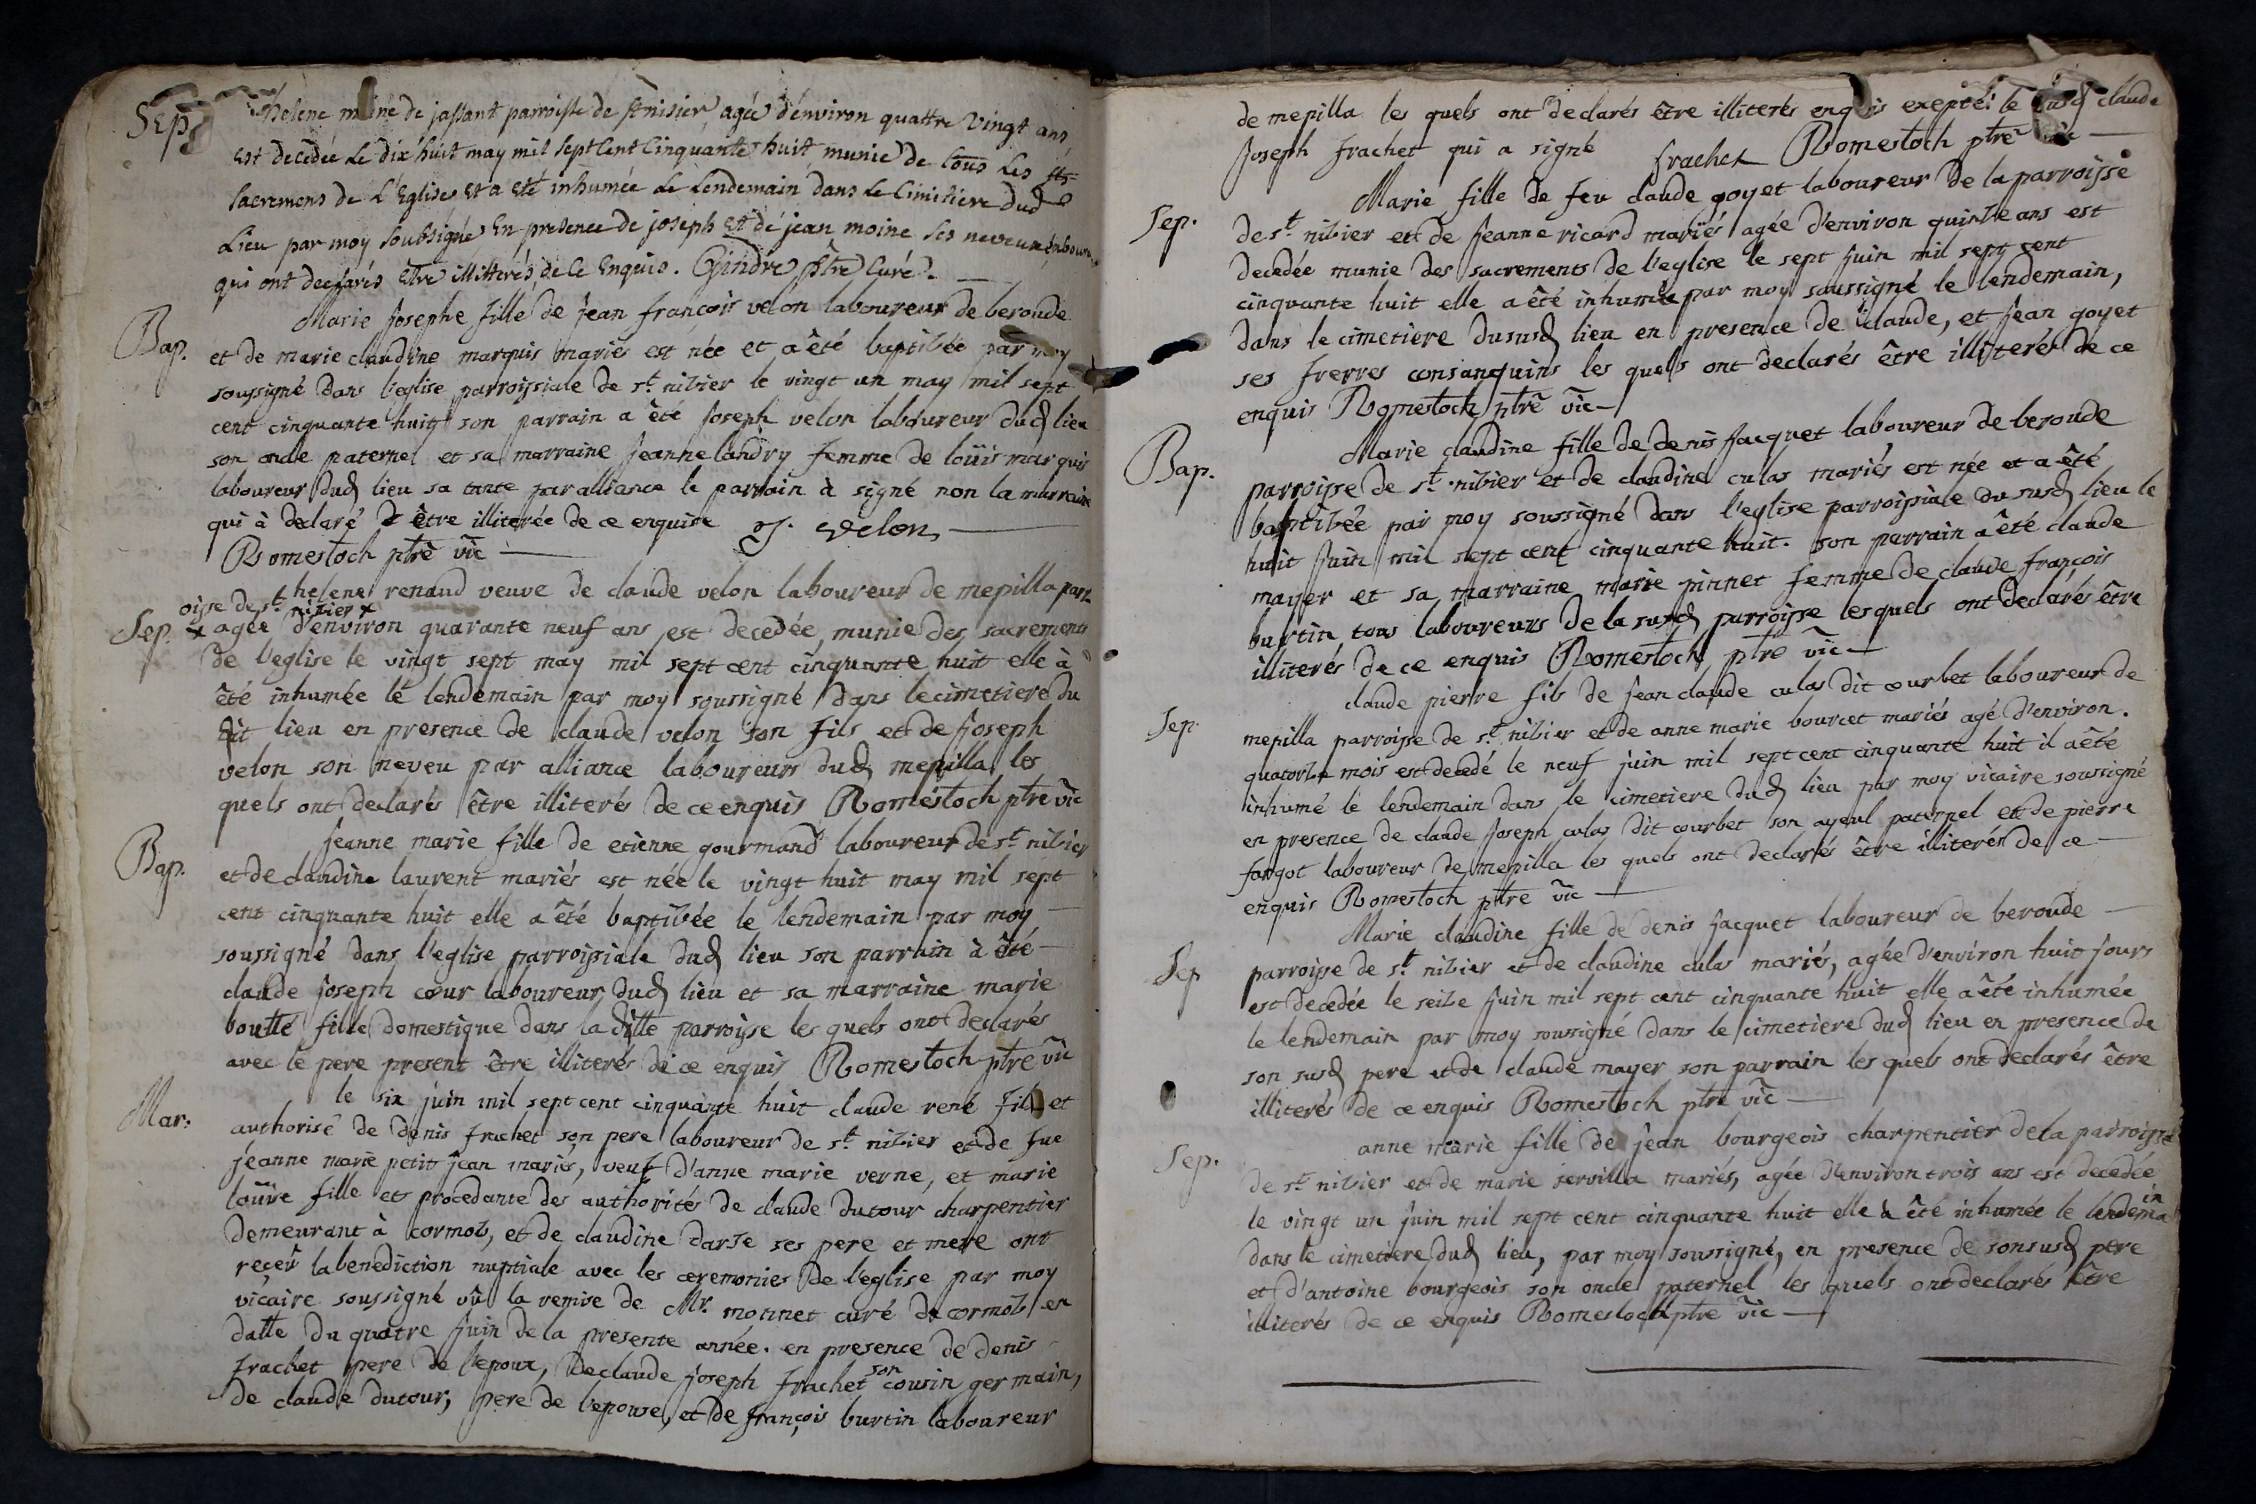 Sep.
helene moine de jassant parroisse de st nisier, agée d'environ quattre vingt ans
est decedée le dix huit may mil sept cent cinquante huit munie de tous les sts
sacremens de l'Eglise et a eté inhumée le lendemain dans le cimitiere dud
lieu par moy soubsigné en presence de joseph et de jean moine ses neveux
qui ont declarés etre illitterés de ce enquis. Gindre ptre curé.
Bap.
Marie josephe fille de jean françois velon laboureur de beroude
et de marie claudine marquis mariés est née et a été baptisée par moy
soussigné dans l'eglise parroissiale de st. nizier le vingt un may mil sept
cent cinquante huit son parrain a été joseph velon laboureur dud lieu
son oncle paternel et sa marraine jeanne landry femme de loüis marquis
laboureur dud lieu sa tante par alliance le parrain à signé non la marraine
qui à declaré être illiterée de ce enquise J. velon
Romestoch ptre vic
Sep.
helene renaud veuve de claude velon laboureur de mepilla parr
oisse de st. nizier x
x agée d'environ quarante neuf ans est decedée munie des sacrements
de l'eglise le vingt sept may mil sept cent cinquante huit elle à
été inhumée le lendemain par moy soussigné dans le cimetiere du
dit lieu en presence de claude velon son fils et de joseph
velon son neveu par alliance laboureurs dud mepilla les
quels ont declarés être illiterés de ce enquis Romestoch ptre vic
Bap.
jeanne marie fille de etienne gourmand laboureur de st. nizier
et de claudine laurent mariés est née le vingt huit may mil sept
cent cinquante huit elle a été baptisée le lendemain par moy
soussigné dans l'eglise parroissiale dud lieu son parrain à été
claude joseph cœur laboureur dud lieu et sa marraine marie
boutte fille domestique dans la ditte parroisse les quels ont declarés
avec le pere present être illiterés de ce enquis Romestoch ptre vic
Mar.
le six juin mil sept cent cinquante huit claude rené fils et
authorisé de denis frachet son pere laboureur de st. nizier et de fue
jeanne marie petit jean mariés, veuf d'anne marie verne, et marie
loüise fille et procedante des authorités de claude dutour charpentier
demeurant à cormoz, et de claudine darse ses pere et mere ont
reçeu la benediction nuptiale avec les ceremonies de l'eglise par moy
vicaire soussigné vû la remise de Mr. monnet curé de cormoz en
datte du quatre juin de la presente année. en presence de denis
frachet pere de l'epoux, de claude joseph frachet son cousin germain,
de claude dutour, pere de l'epouse, et de françois burtin laboureur
de mepilla les quels ont declarés être illiterés enquis exepté le susd claude
joseph frachet qui a signé frachet Romestoch ptre vic
Sep.
Marie fille de feu claude goyet laboureur de la parroisse
de st. nizier et de jeanne ricard mariés agée d'environ quinze ans est
decedée munie des sacrements de l'eglise le sept juin mil sept cent
cinquante huit elle a été inhumée par moy soussigné le lendemain,
dans le cimetiere du susd lieu en presence de claude, et jean goyet
ses frerres consanguins les quels ont declarés être illiterés de ce
enquis Romestoch ptre vic
Bap.
Marie claudine fille de denis jacquet laboureur de beroude
parroisse de st. nizier et de claudine culas mariés est née et a été
baptisée par moy soussigné dans l'eglise parroissiale du susd lieu le
huit juin mil sept cent cinquante huit. son parrain a été claude
mayer et sa marraine marie pinnet femme de claude françois
burtin tous laboureurs de la susd parroisse lesquels ont declarés être
illiterés de ce enquis Romestoch ptre vic
Sep.
claude pierre fils de jean claude culas dit courbet laboureur de
mepilla parroisse de st. nizier et de anne marie bourcet mariés agé d'environ.
quatorze mois est decedé le neuf juin mil sept cent cinquante huit il a été
inhumé le lendemain dans le cimetiere dud lieu par moy vicaire soussigné
en presence de claude joseph culas dit courbet son ayeul paternel et de pierre
fargot laboureur de mepilla les quels ont declarés être illiterés de ce
enquis Romestoch ptre vic
Sep
Marie claudine fille de denis jacquet laboureur de beroude
parroisse de st. nizier et de claudine culas mariés, agée d'environ huit jours
est decedée le seize juin mil sept cent cinquante huit elle a été inhumée
le lendemain par moy soussigné dans le cimetiere dud lieu en presence de
son susd pere et de claude mayer son parrain les quels ont declarés être
illiterés de ce enquis Romestoch ptre vic
Sep.
anne marie fille de jean bourgeois charpentier de la parroisse
de st. nizier et de marie servilla mariés, agée d'environ trois ans est decedée
le vingt un juin mil sept cent cinquante huit elle à été inhumée le lendemain
dans le cimetiere dud lieu, par moy soussigné, en presence de son susd pere
et d'antoine bourgeois son oncle paternel les quels ont declarés être
illiterés de ce enquis Romestoch ptre vic